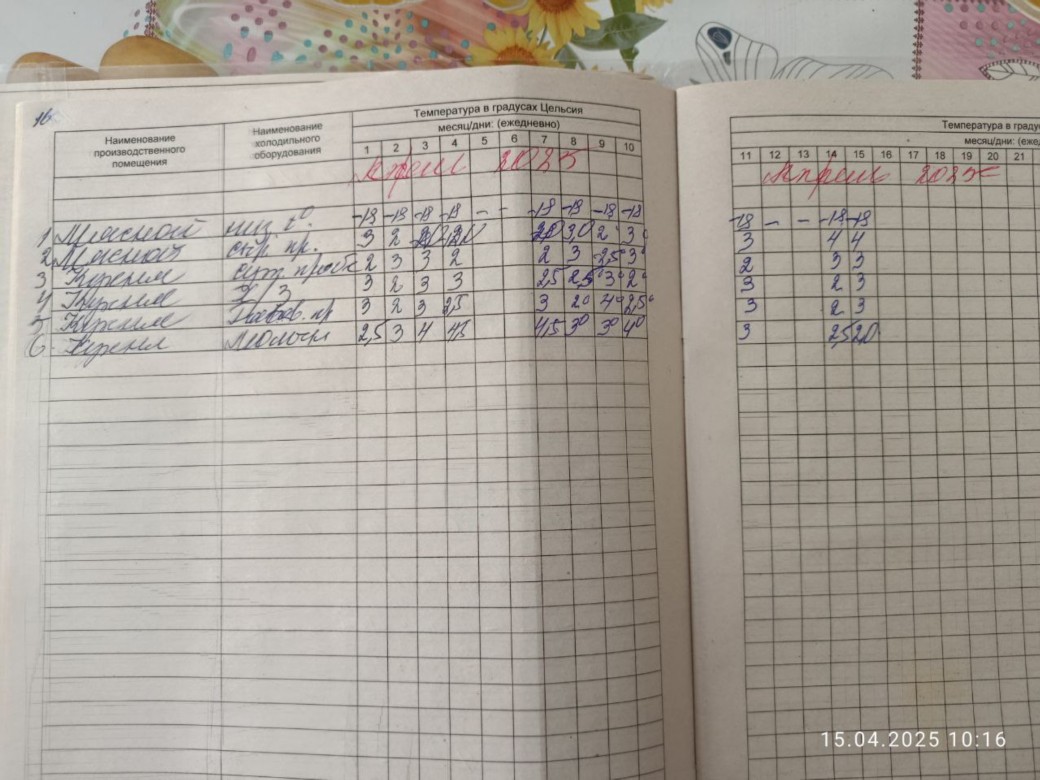 Температура в градусах Цельсия
Наименование производственного помещения
Наименование холодильного оборудования
месяц/дни: (ежедневно)
1 2 3 4 5 6 7 8 9 10
апрель 2025
1 Мясной низ. t° -18 -18 -18 -18 - - -18 -18 -18 -18
2 Мясной сыр. пр. 3 2
3 2 3 3 2 2 3 2,5° 3°
4 3 2 3 3 2,5 2,5 3° 2°
5 3 2 3 2,5 3 2° 4° 2,5°
6. 2,5 3 4 4,5 4,5 3° 3° 4°
Температура в граду
месяц/дни: (еже
11 12 13 14 15 16 17 18 19 20 21
апрель 2025
-18 - - -18 -18
3 4 4
2 3 3
3 2 3
3 2 3
3 2,5 2,0
15.04.2025 10:16